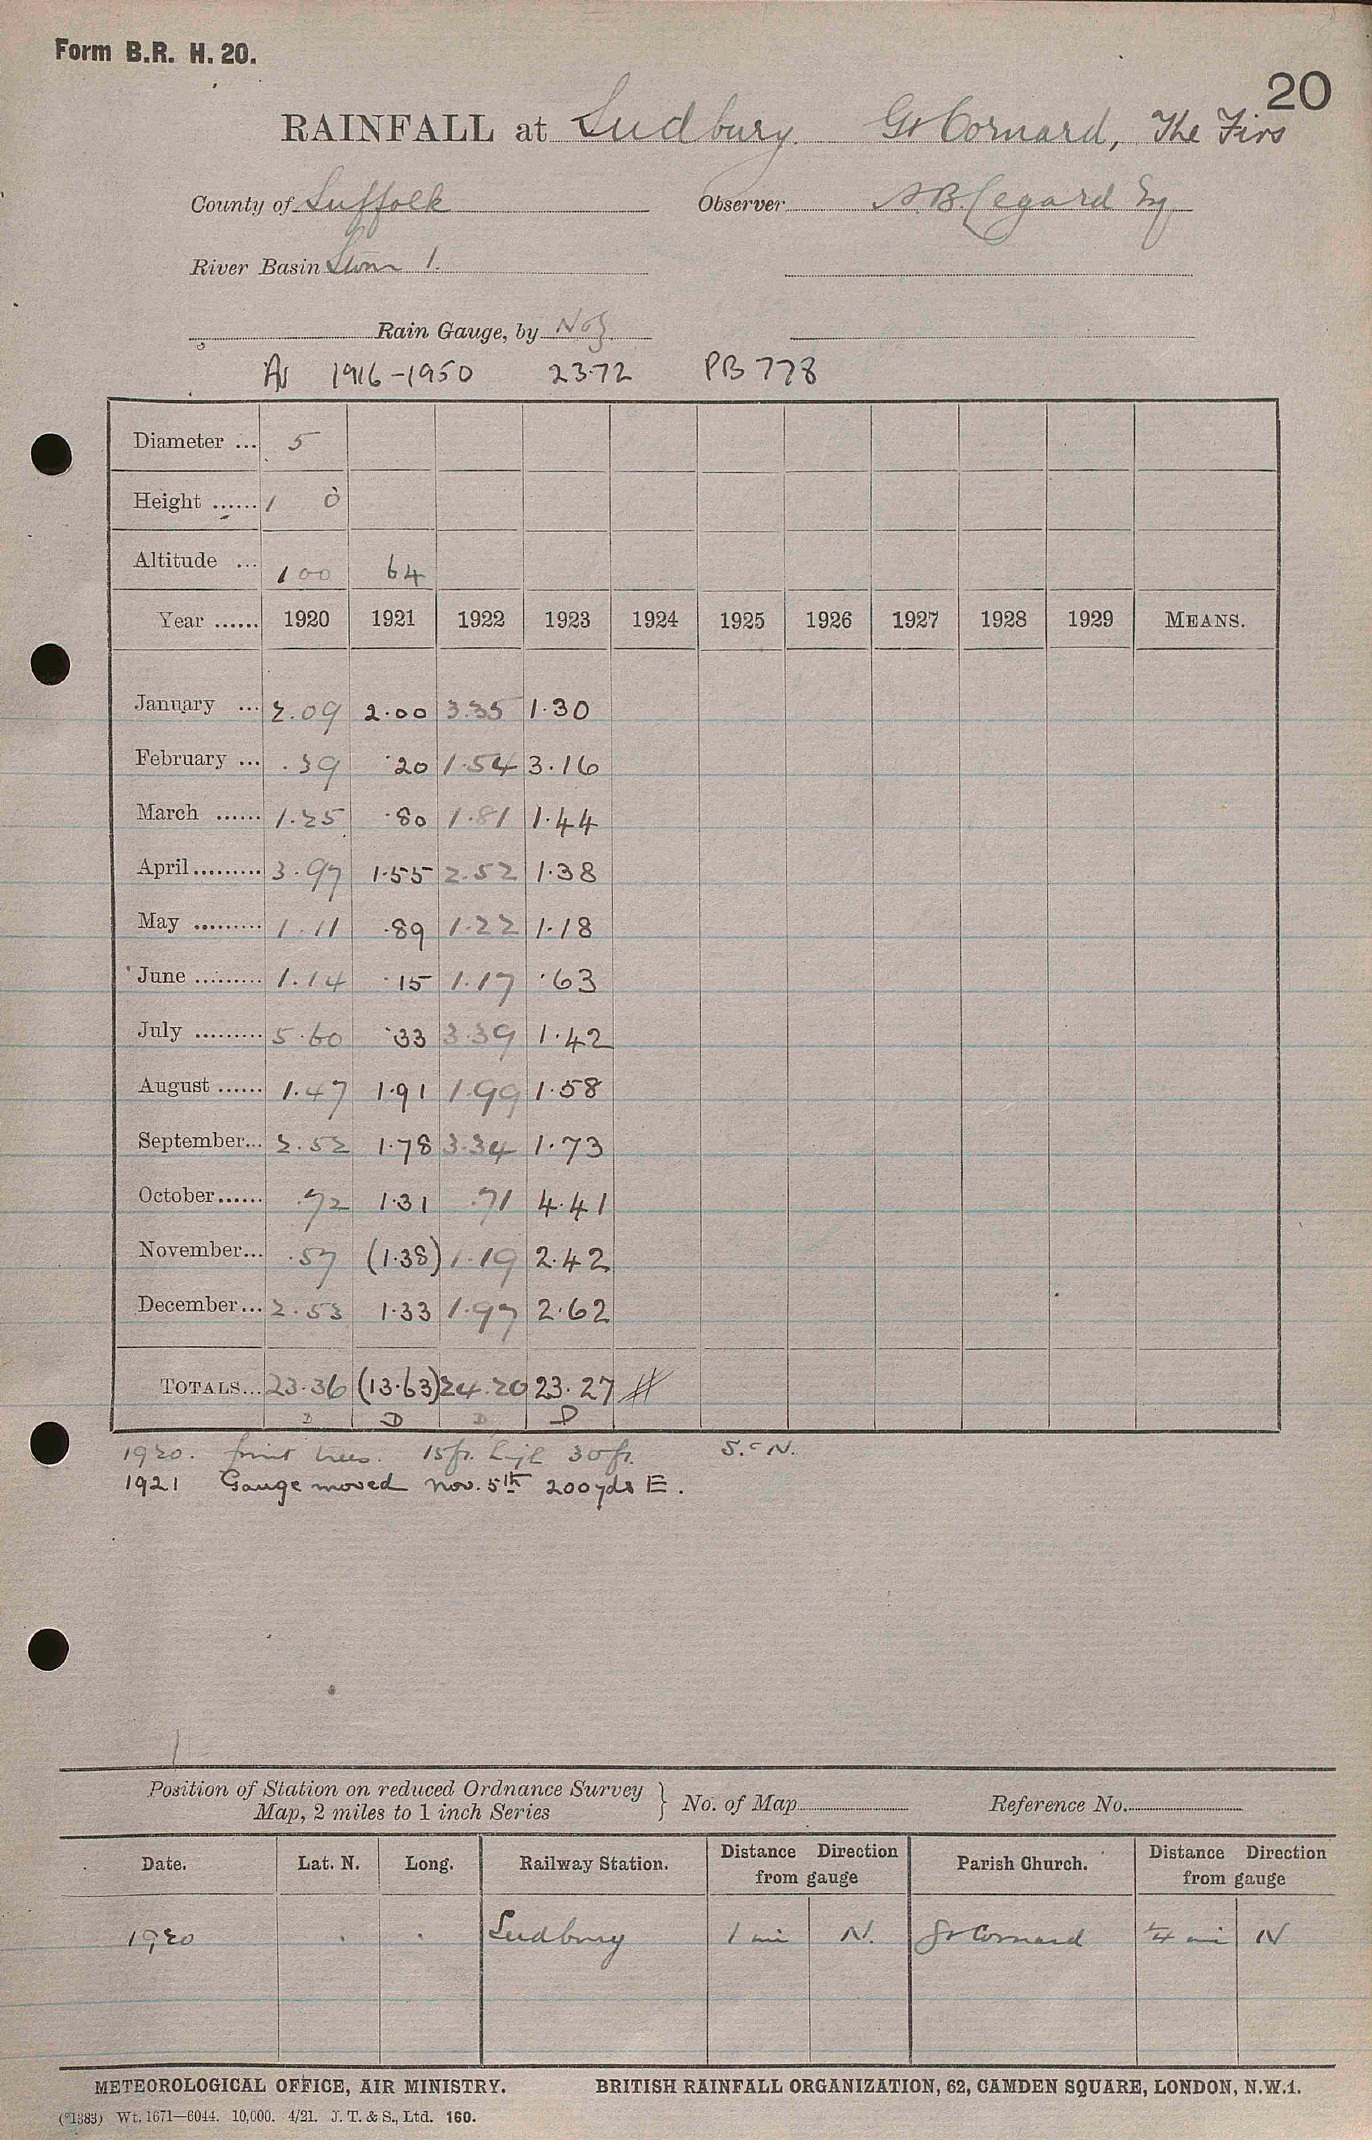 Form B.R. H. 20.
20
RAINFALL at Sudbury. Gt Cornard, The Firs
County of Suffolk Observer A.B. Legard Esq
River Basin Stour 1.
Rain Gauge, by Neg.
Av 1916-1950 23.72 PB 778
Diameter ... 5
Height ...... 1 0
Altitude ... 100 64
Year ...... 1920 1921 1922 1923 1924 1925 1926 1927 1928 1929 MEANS.
January ... 2.09 2.00 3.35 1.30
February ... .39 .20 1.54 3.16
March ...... 1.25 .80 1.81 1.44
April......... 3.97 1.55 2.52 1.38
May ......... 1.11 .89 1.22 1.18
June ......... 1.14 .15 1.17 .63
July ......... 5.60 .33 3.39 1.42
August ...... 1.47 1.91 1.99 1.58
September... 2.52 1.78 3.34 1.73
October...... .72 1.31 .71 4.41
November... .57 (1.38) 1.19 2.42
December... 2.53 1.33 1.97 2.62
TOTALS... 23.36 (13.63) 24.20 23.27
D D D D
1920. fruit trees. 15ft. high 30ft. S. & N.
1921 Gauge moved Nov. 5th 200yds E.
Position of Station on reduced Ordnance Survey
Map, 2 miles to 1 inch Series } No. of Map Reference No.
Date. Lat. N. Long. Railway Station. Distance Direction from gauge Parish Church. Distance Direction from gauge
1920 Sudbury 1 mi N. Gt Cornard 1/4 mi N
METEOROLOGICAL OFFICE, AIR MINISTRY. BRITISH RAINFALL ORGANIZATION, 62, CAMDEN SQUARE, LONDON, N.W.1.
(*1383) Wt. 1671—6044. 10,000. 4/21. J. T. & S., Ltd. 160.